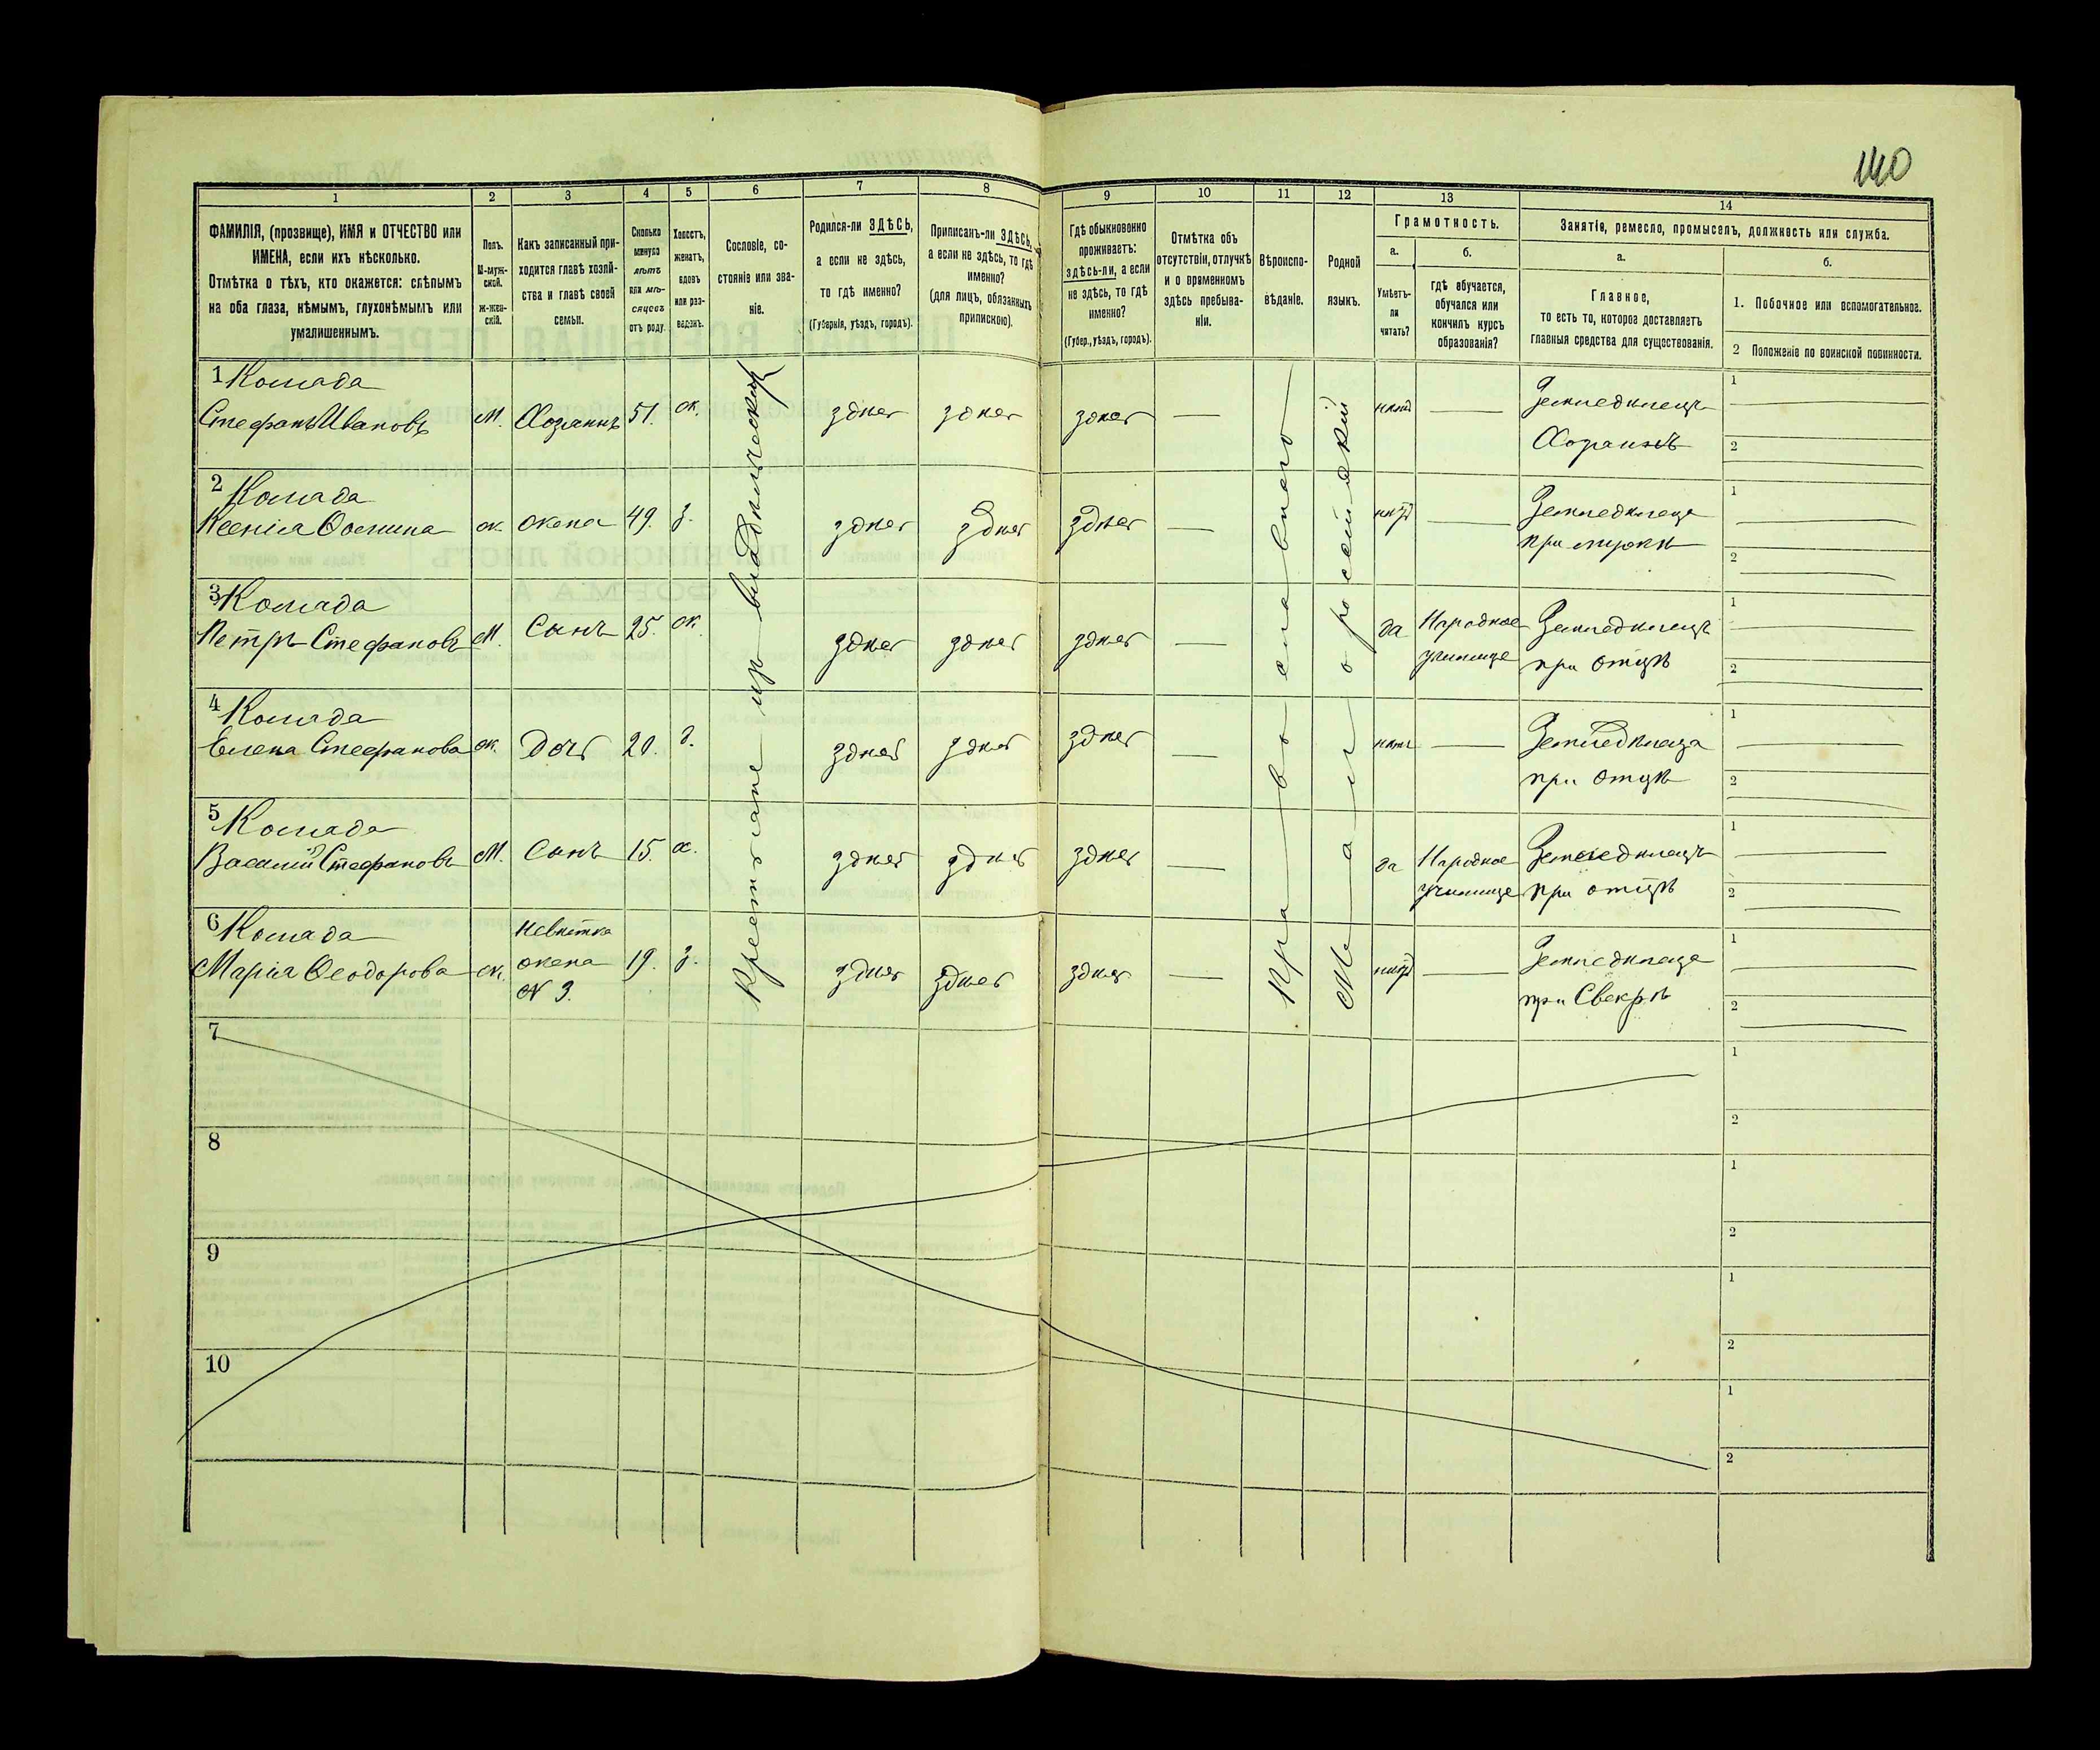 140
1
2
3
4
5
6
7
8
9
10
11
12
13
14
ФАМИЛІЯ, (прозвище), ИМЯ и ОТЧЕСТВО или
ИМЕНА, если ихъ нѣсколько.
Отмѣтка о тѣхъ, кто окажется: слѣпымъ
на оба глаза, нѣмымъ, глухонѣмымъ или
умалишеннымъ.
Полъ.
М-муж-
ской.
ж-жен-
скій.
Какъ записанный при-
ходится главѣ хозяй-
ства и главѣ своей
семьи.
Сколько
минуло
лѣтъ
или мѣ-
сяцевъ
отъ роду.
Холостъ,
женатъ,
вдовъ
или раз-
веденъ.
Сословіе, со-
стояніе или зва-
ніе.
Родился-ли ЗДѢСЬ,
а если не здѣсь,
то гдѣ именно?
(Губернія, уѣздъ, городъ).
Приписанъ-ли ЗДѢСЬ,
а если не здѣсь, то гдѣ
именно?
(для лицъ, обязанныхъ
припискою).
Гдѣ обыкновенно
проживаетъ:
здѣсь-ли, а если
не здѣсь, то гдѣ
именно?
(Губер., уѣздъ, городъ).
Отмѣтка объ
отсутствіи, отлучкѣ
и о временномъ
здѣсь пребыва-
ніи.
Вѣроиспо-
вѣданіе.
Родной
языкъ.
Грамотность.
а.
Умѣетъ-
ли
читать?
б.
гдѣ обучается,
обучался или
кончилъ курсъ
образованія?
Занятіе, ремесло, промыселъ, должность или служба.
а.
Главное,
то есть то, которое доставляетъ
главныя средства для существованія.
б.
1. Побочное или вспомогательное.
2 Положеніе по воинской повинности.
Крестьяне изъ владѣльческихъ
Православнаго
Малоросейскій
1 Комада
Стефанъ Ивановъ М. Хозяинъ 51. ж. здѣсь здѣсь здѣсь — нѣтъ — Земледѣлецъ
Хозяинъ
1
2
2 Комада
Ксенія Фомина ж. жена 49. з. здѣсь здѣсь здѣсь — нѣтъ — Земледѣлица
при мужѣ
1
2
3 Комада
Петръ Стефановъ М. Сынъ 25. ж. здѣсь здѣсь здѣсь — да Народное Земледѣлецъ
училище при отцѣ
1
2
4 Комада
Елена Стефанова ж. Дочь 20. д. здѣсь здѣсь здѣсь — нѣтъ — Земледѣлица
при отцѣ
1
2
5 Комада
Василій Стефановъ М. Сынъ 15. х. здѣсь здѣсь здѣсь — да Народное Земледѣлецъ
училище при отцѣ
1
2
6 Комада
Невѣстка
Марія Ѳеодорова ж. жена 19. з. здѣсь здѣсь здѣсь — нѣтъ — Земледѣлица
№ 3. при Свекрѣ
1
2
7
1
2
8
1
2
9
1
2
10
1
2